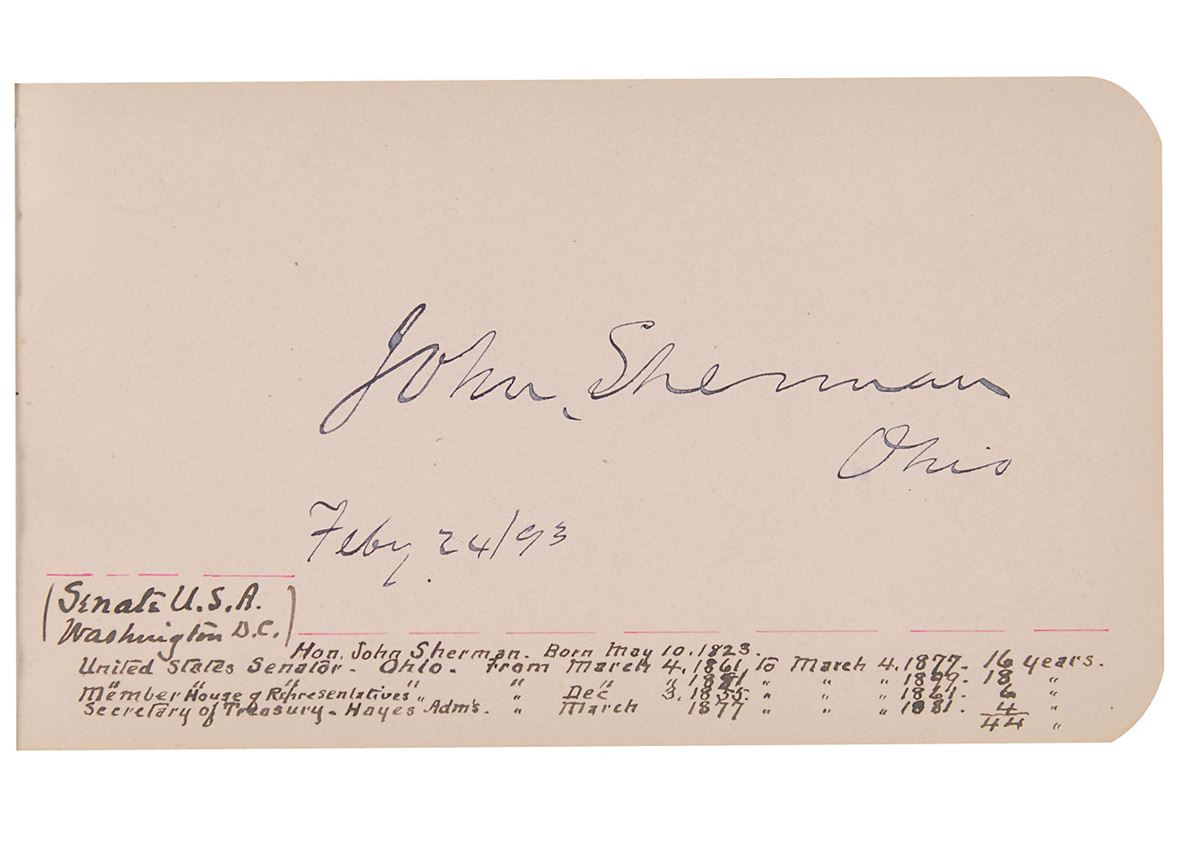 John Sherman
Ohio
Feby 24/93
(Senate U.S.A.
Washington D.C.)
Hon. John Sherman. Born May 10.1823.
United States Senator. Ohio. From March 4.1861, to March 4.1877. 16 years.
" " " " " " 1881 " " " 1899. 18 "
Member House of Representatives " " Dec 3.1855. " " " 1861. 6 "
Secretary of Treasury. Hayes' Adm's. " March 1877 " " " 1881. 4 "
44 "